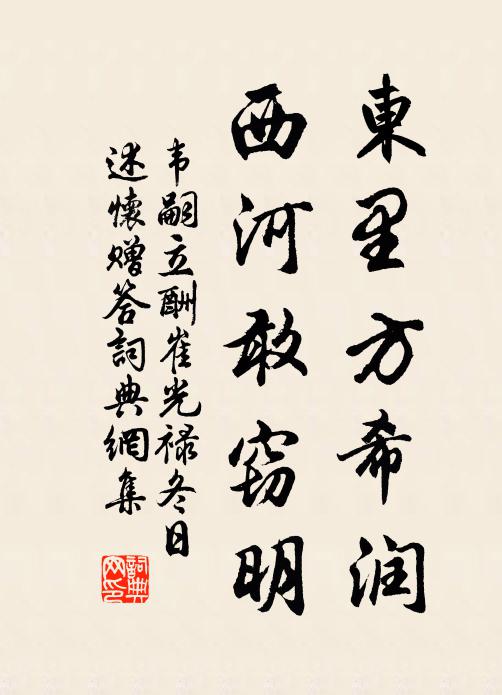 東里方希润
西河敢窃明
韦嗣立酬崔光禄冬日
述懷赠答詞典網集
詞典网印